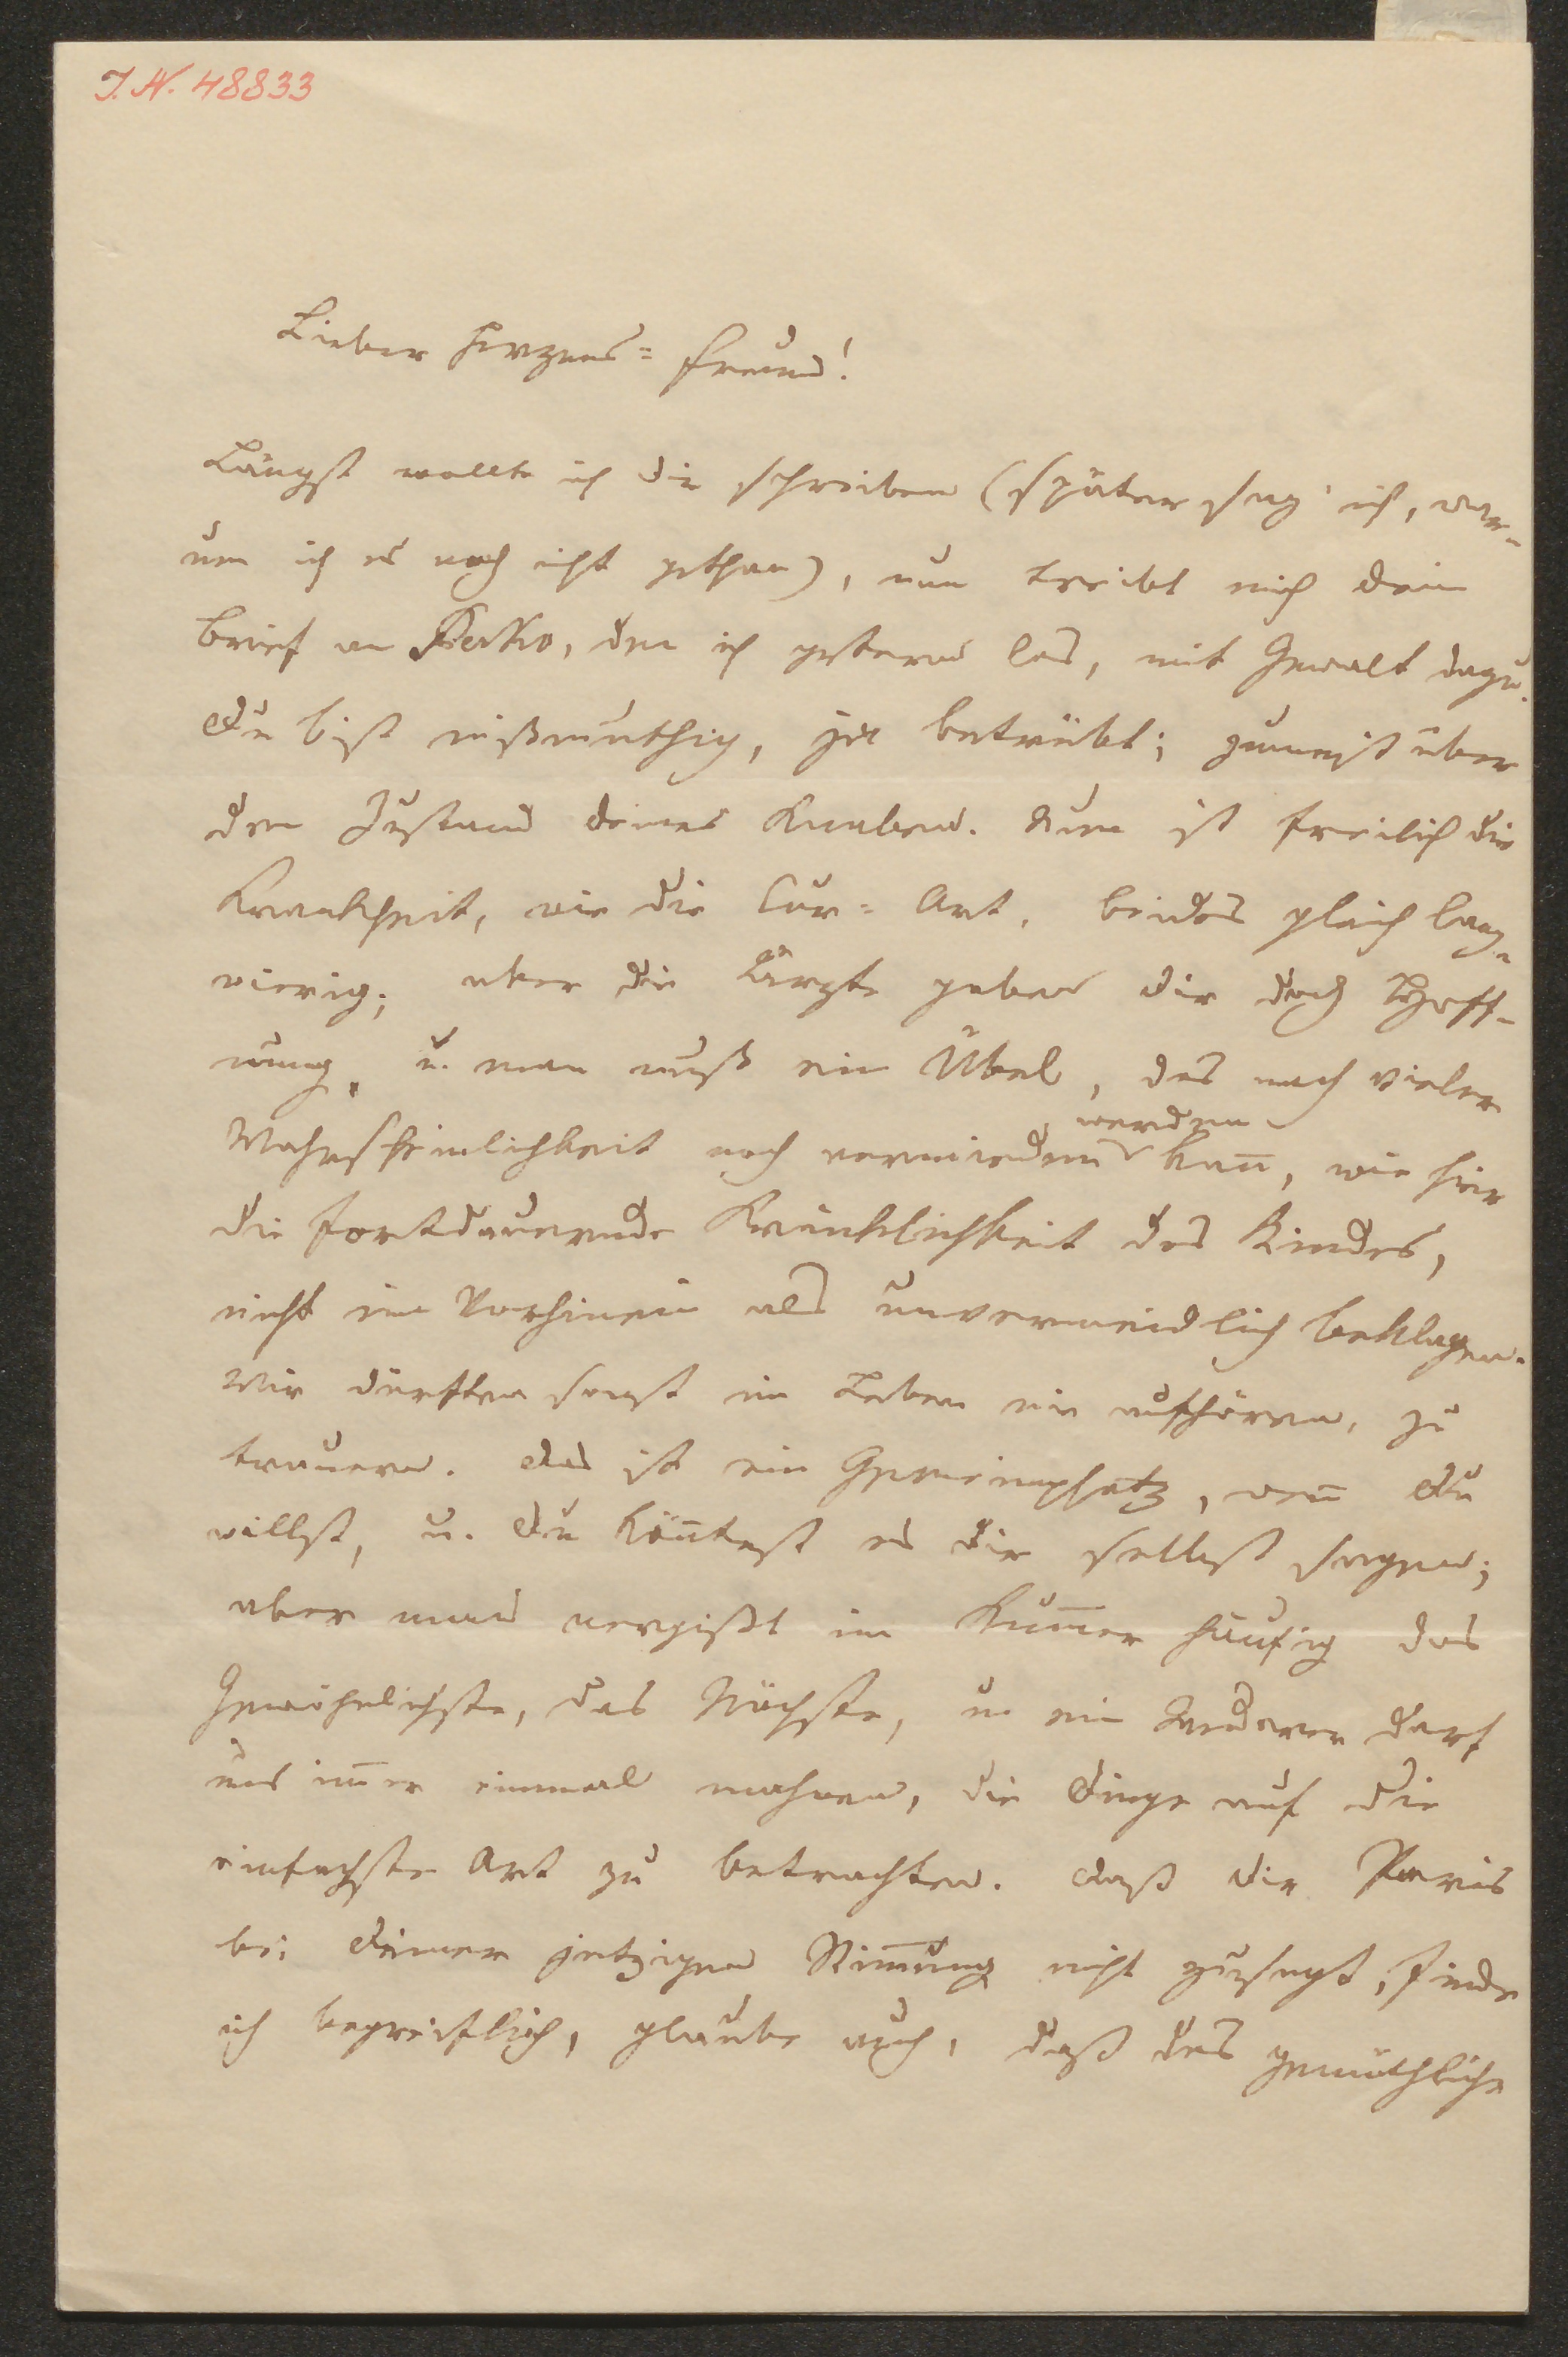 J. N. 48833
Lieber Herzens=Freund!
Längst wollte ich dir schreiben (später sag' ich, war-
um ich es noch nicht gethan), nun treibt mich dein
Brief an , den ich gestern las, mit Gewalt dazu.
Du bist mißmuthig, ja betrübt; zumeist über
den Zustand deines Knaben. Nun ist freilich die
Krankheit, wie die Cur=Art, beides gleich lang-
wierig; aber die Ärzte geben dir doch Hoff-
nung, u. man muß ein Übel, das nach vieler
Wahrscheinlichkeit noch vermieden werden kan̄, wie hier
die fortdauernde Kränklichkeit des Kindes,
nicht im Vorhinein als unvermeidlich beklagen.
Wir dürften sonst im Leben nie aufhören, zu
trauern. Das ist ein Gemeinplatz, wen̄ du
willst, u. du kön̄test es dir selbst sagen;
aber man vergißt im Kum̄er häufig das
Gewöhnlichste, das Nächste, u. ein Anderer darf
uns im̄er einmal mahnen, die Dinge auf die
einfachste Art zu betrachten. Daß dir Paris
bei deiner jetzigen Stim̄ung nicht zusagt, finde
ich begreiflich, glaube auch, daß das gemüthliche